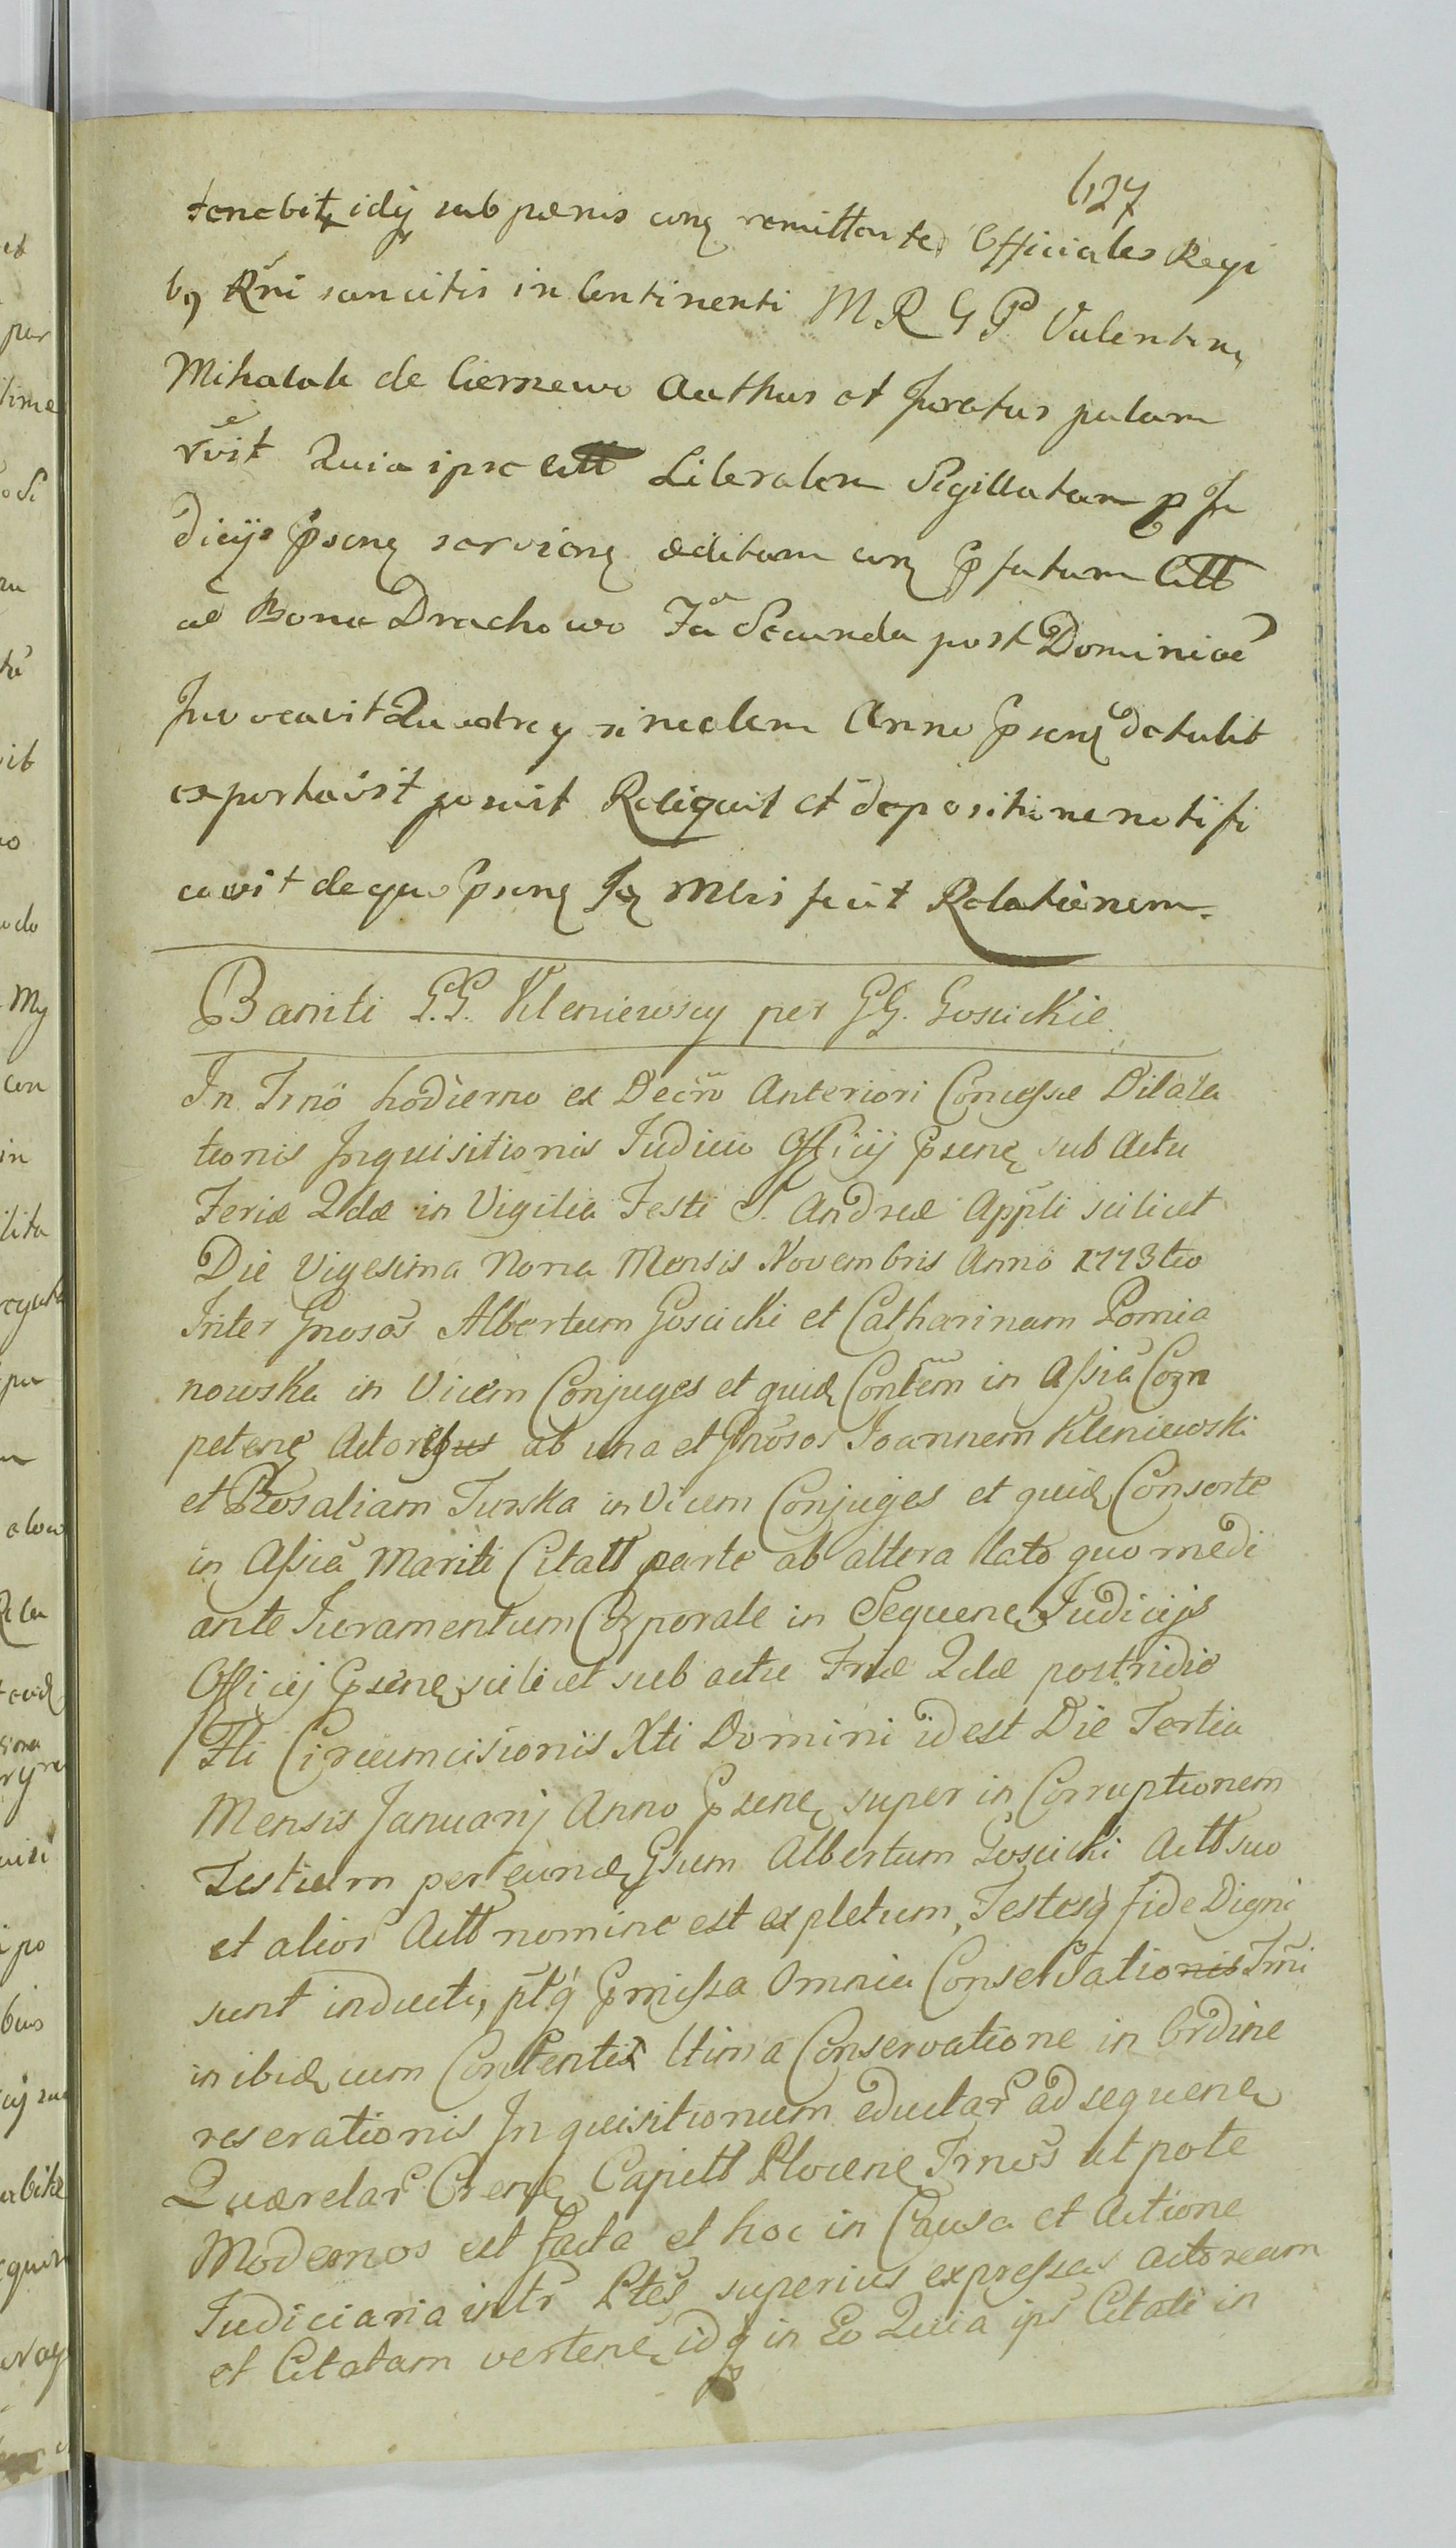 627
tenebitr idq sub pænis conz remittentes Officiales Regi
bg Rni sancitis in Continenti M R G P Valentinq
Mihalak de Ciernewo Authus et Juratus palam
rvit Quia ipse Citt Literalem Sigillatam p Ju
dicijs Pseng servieng editam conz Pfatum Citt
ad Bona Drachowo Fa Secunda post Dominicã
Invocavit Quadragesimalem Anno Pseng detulit
exportavit posuit Reliquit et depositione notifi
cavit de quo Pseng fecit Relationem.
Baniti G.G. Kleniewscy per GG. Gosiickie.
In Trnõ hodierno ex Decrõ Anteriori Concessæ Dilata
tionis Inquisitionis Judicio Officij Psenę sub Actu
Feriæ 2dæ in Vigilia Festi S. Andreæ Appli scilicet
Die Vigesima Nona Mensis Novembris Anno 1773tio
Inter Gnosos Albertum Gosiicki et Catharinam Pomia
nowska in Vicem Conjuges et quidę Contem in Assiã Com
petenę Actores ab una et Gnosos Joannem Kleniewski
et Rosaliam Turska in Vicem Conjuges et quidę Consorte
in Assiã Mariti Citatt parte ab altera lato quo medi
ante Juramentum Corporale in Sequenę Judicijs
Officij Psenę scilicet sub actu Friæ 2dæ postridie
Fti Circumcisionis Xti Domini id est Die Tertia
Mensis Januarij Anno Psenę super in Corruptionem
Testium per eundę Gsum Albertum Gosiicki Actt suo
et alior Actt nomine est expletum, Testesq fide Digni
sunt inducti, ptq Pmissa Omnia Conservatio Trni
in ibidę cum Contentis Ultima Conservatione in Ordine
reserationis Inquisitionum eductar ad sequenę
Quærelar Crenę Capitt Plocenę Trnos ut pote
Modernos est facta et hoc in Causa et Actione
Judiciaria intr Ptes superius expressas Actoream
et Citatam vertenę idq in Eo Quia ips Citati in